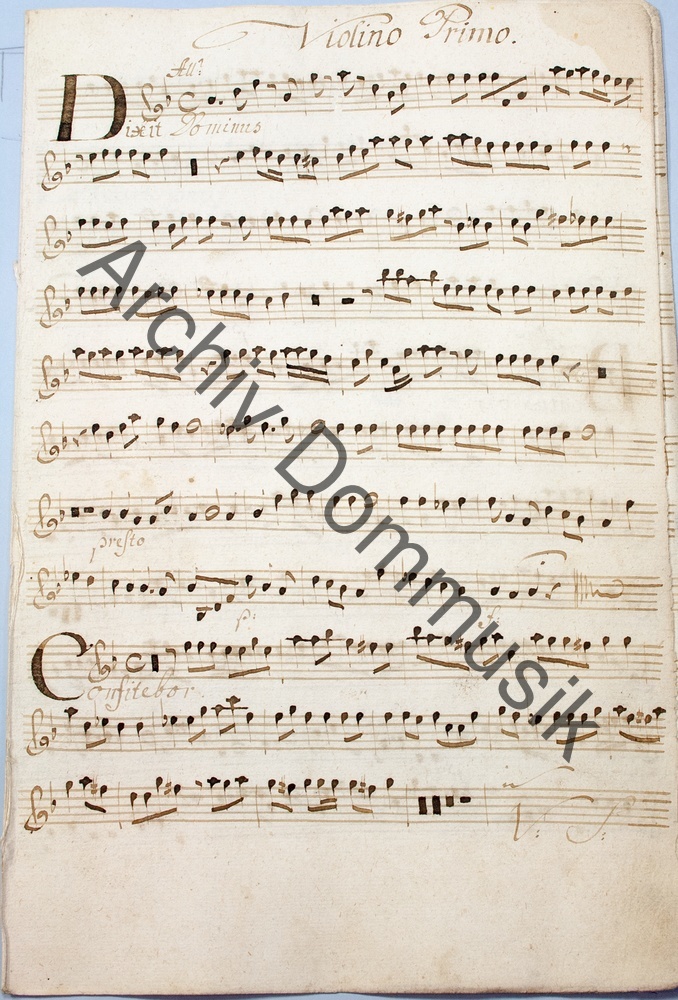 Violino Primo.
All:
Dixit Dominus
presto
p:
f:
Confitebor
V: S:
Archiv Dommusik